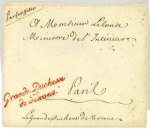 A Monsieur
Ministre de l'Intérieur
Grande Duchesse
de Toscane
Paris
La Grande Duchesse de Toscane